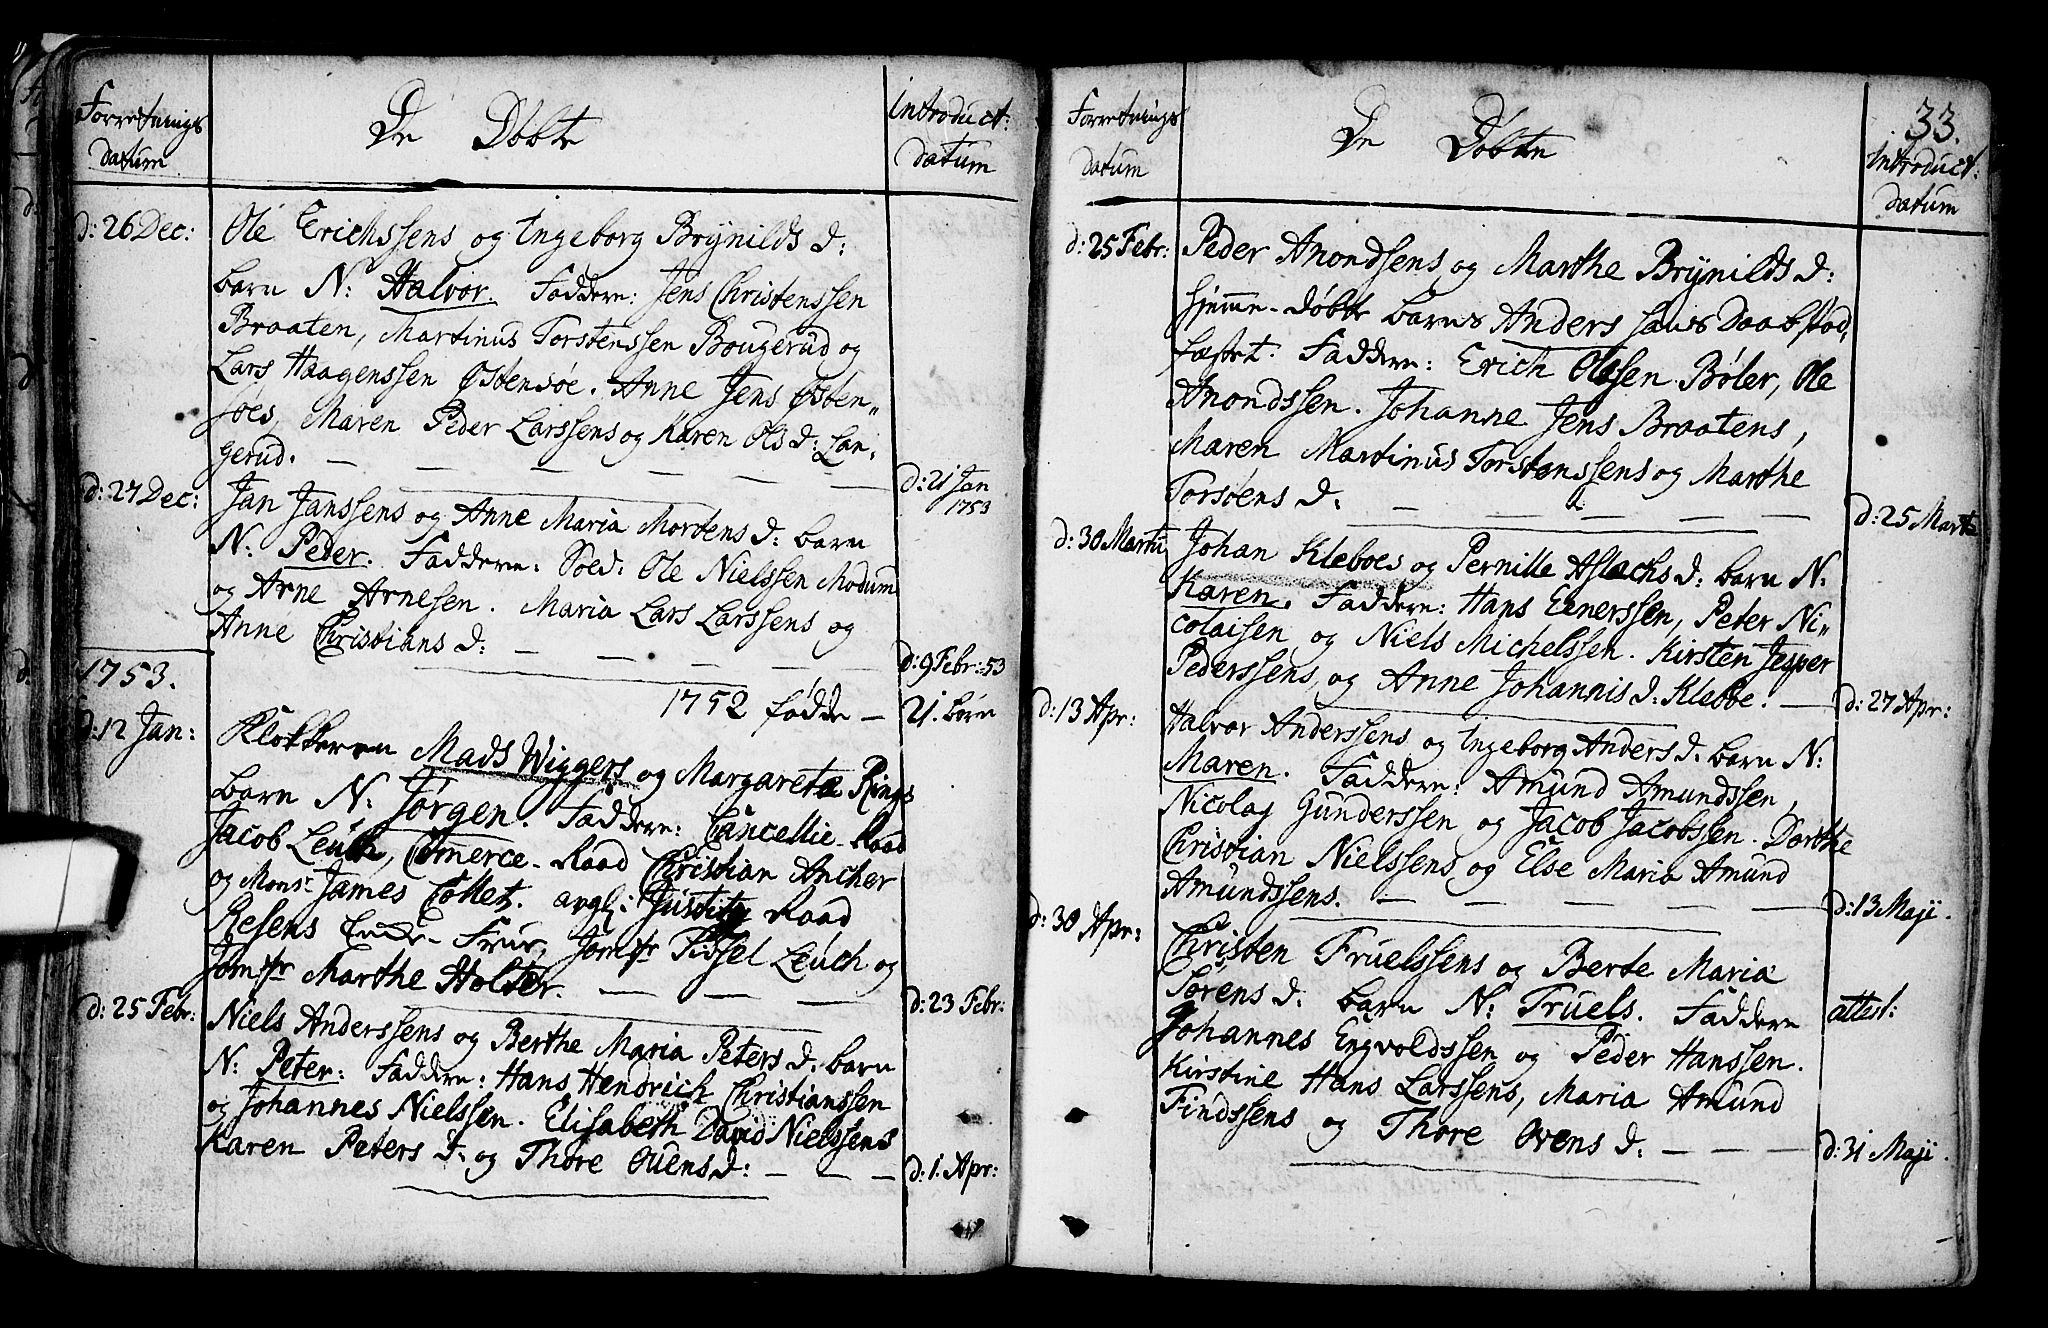 Forretnings
datum
De Døbte
introduct:
datum
d: 26 Dec:
Ole Erichssens og Ingeborg Brynilds d:
barn N: Halvor. Faddere: Jens Christenssen
Braaten, Martinus Torstenssen Bougerud og
Lars Haagenssen Østensøe. Anne Jens Østen„
søes, Maren Peder Larssens og Karen Ols d: Lan„
gerud. — — — — —
d: 21 Jan
1753
d: 27 Dec:
Jan Janssens og Anne Maria Mortens d: barn
N: Peder. Faddere: Soed: Ole Nielssen Modum
og Arne Arnesen. Maria Lars Larssens og
Anne Christians d: — — — —
d: 9 Febr: 53
1753.
1752 fødde —
21. børn
d: 12 Jan:
Klokkeren Mads Wiggers og Margareta Rings
barn N: Jørgen. Faddere: Cancellie-Raad
Jacob Leuch, Comerce-Raad Christian Ancher
og Monsr James Collet. avgl: Justitz Raad
Resens Encke-Frue, Jomfr Sissel Leuch og
Jomfr Marthe Holter. — — —
d: 23 Febr:
d: 25 Febr:
Niels Anderssens og Berthe Maria Peters d. barn
N: Peter: Faddere: Hans Hendrich Christianssen
og Johannes Nielssen. Elisabeth David Nielssens
Karen Peters d: og Thore Ouens d: — — —
d: 1. Apr:
33.
Forretnings
datum
De Døbte
Introduct:
datum
d: 25 Febr:
Peder Anondsens og Marthe Brynilds d:
hjemme-døbte barns Anders hans Daab stad„
fæstet. Faddere: Erich Olssen Bøler, Ole
Anondssen. Johanne Jens Braatens,
Maren Martinus Torstenssens og Marthe
Torsøens d: — — — — —
d: 25 Martii
d: 30 Martii
Johan Kleboes og Pernille Aslachs d: barn N:
Karen. Faddere: Hans Einerssen, Peter Ni„
colaisen og Niels Michelssen. Kirsten Jesper
Pederssens, og Anne Johannis d. Klebbe. —
d: 27 Apr:
d: 13 Apr:
Halvor Anderssens og Ingeborg Anders d. barn N:
Maren. Faddere: Amund Amundssen,
Nicolay Gunderssen og Jacob Jacobssen. Dorthe
Christian Nielssens, og Else Maria Amund
Amundssens. — — — —
d: 13 Maji.
d: 30 Apr:
Christen Truelssens og Berte Maria
Sørens d. barn N: Truels. Faddere
Johannes Engvoldssen og Peder Hanssen.
Kirstine Hans Larssens, Maria Amund
Findssens og Thore Ovens d. — — —
attest:
d: 31 Maji.